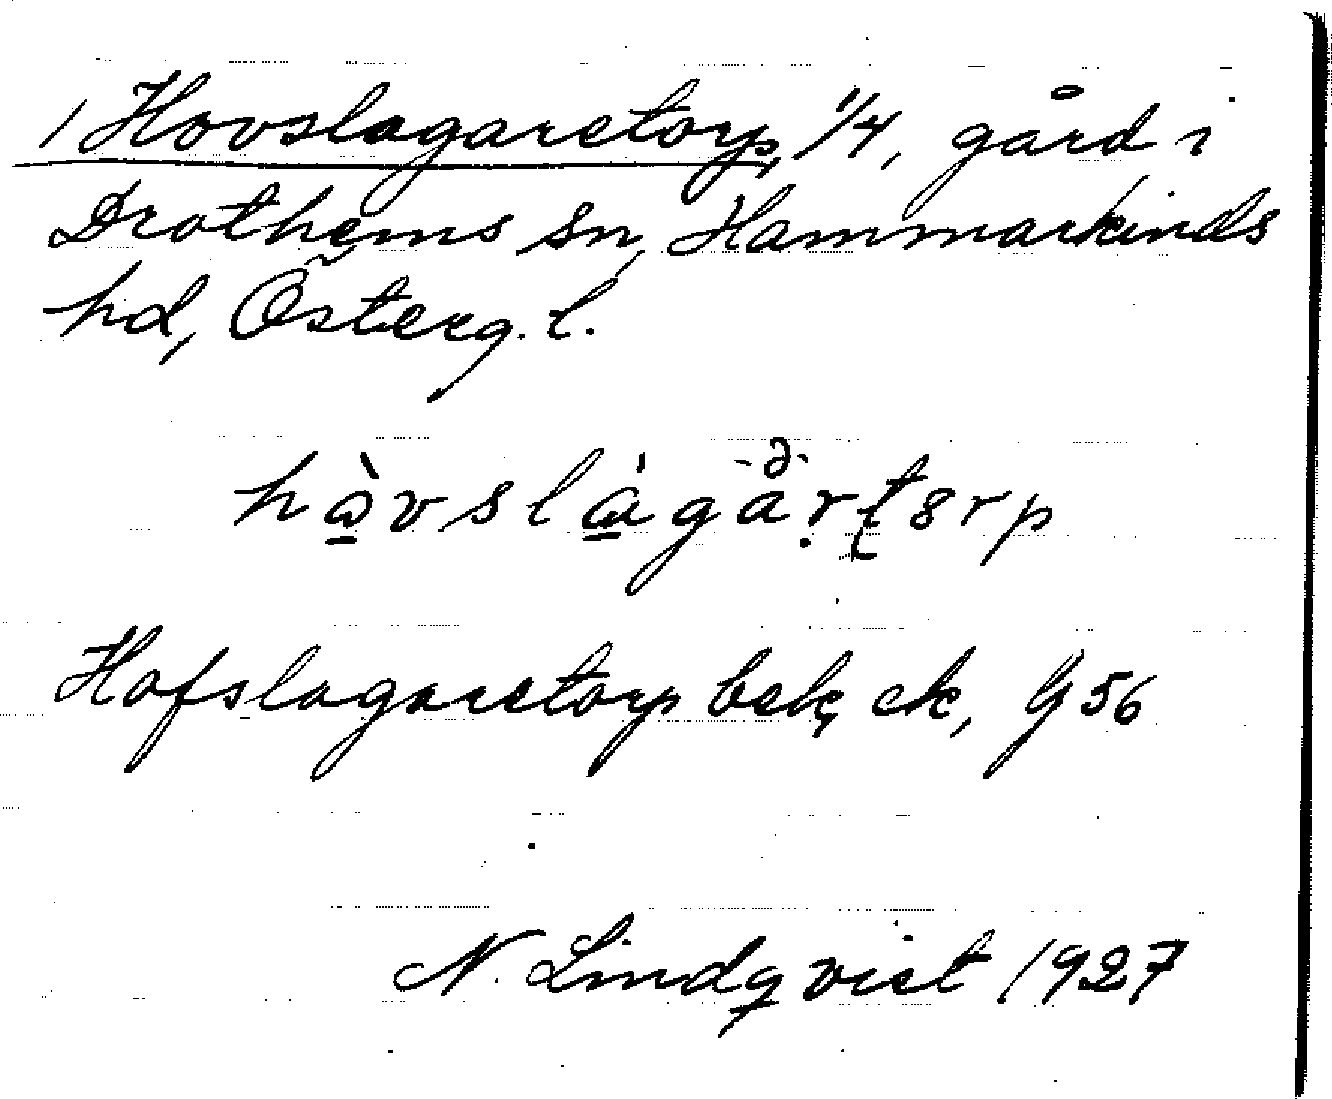 1 Hovslagaretorp, 1/4, gård i
Drothems sn, Hammarkinds
hd, Österg. l.
Hofslagaretorp bek, ek, G 56
N. Lindqvist 1927